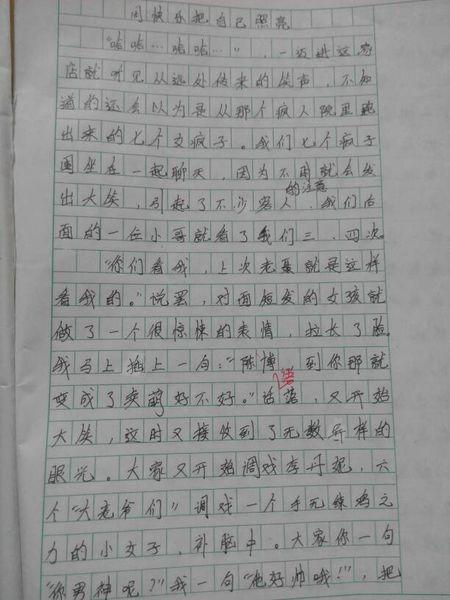 用快乐把自己照亮
“哈哈…哈哈…”,一迈进这家
店就听见从远处传来的笑声,不知
道的还会以为是从那个疯人院里跑
出来的七个女疯子。我们七个疯子
围坐在一起聊天,因为不时就会发
出大笑,引起了不少客人的注意,我们后
面的一位小哥就看了我们三、四次。
“你们看我,上次老聂就是这样
看我的。”说罢,对面短发的女孩就
做了一个很惊悚的表情,拉长了脸。
我马上补上一句:“陈博,到你那就
变成了卖萌好不好。”话落,又开始
大笑,这时又接收到了无数异样的
眼光。大家又开始调戏李丹妮,六
个“大老爷们”调戏一个手无缚鸡之
力的小女子,补脑中。大家你一句
“你男神呢?”我一句“他好帅哦!”,把